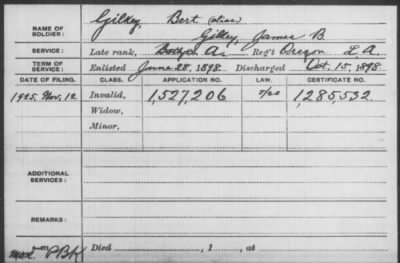 NAME OF SOLDIER: Gilkey, Bert (alias)
Gilkey, James B
SERVICE: Late rank, Batty A. Reg't Oregon L.A.
TERM OF SERVICE: Enlisted June 28, 1898. Discharged Oct. 15, 1898.
DATE OF FILING. CLASS. APPLICATION NO. LAW. CERTIFICATE NO.
1925, Nov. 12 Invalid, 1,527,206 1,285,532
Widow,
Minor,
ADDITIONAL SERVICES:
REMARKS:
Died , 1 , at